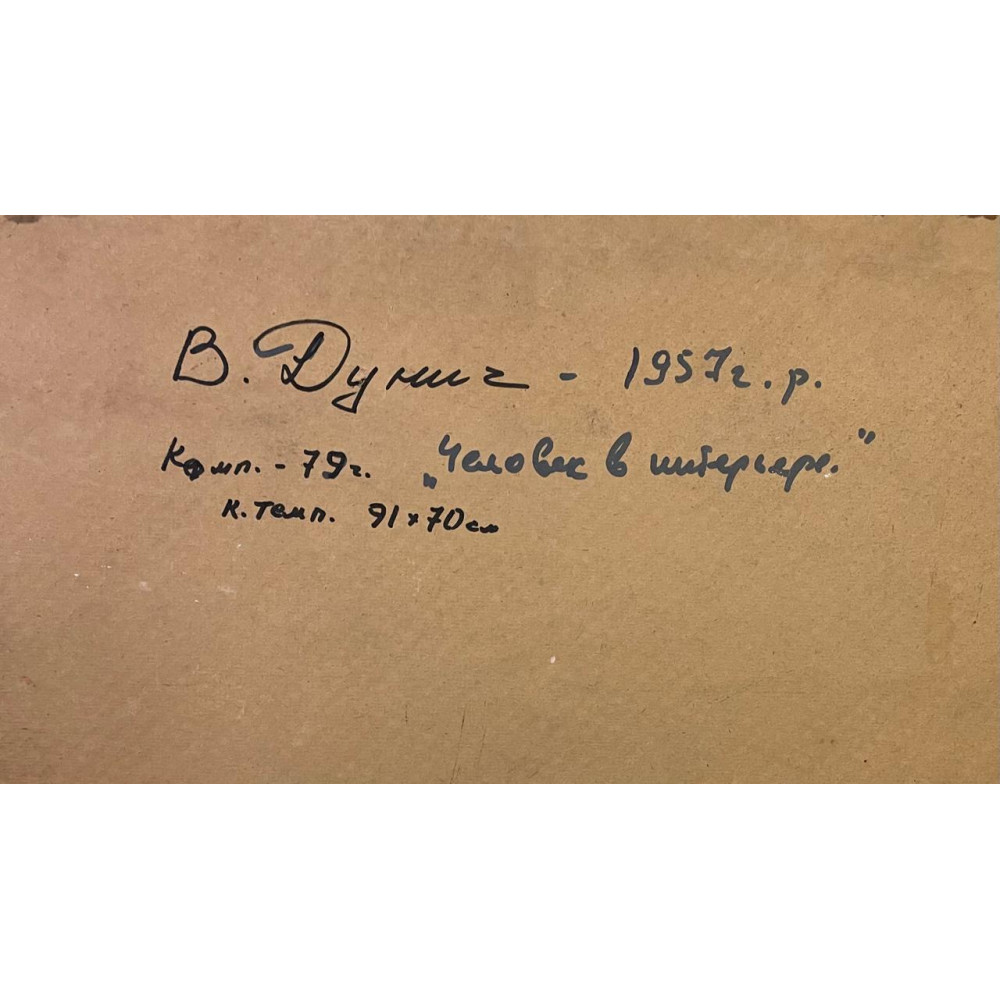 В. Дунич - 1957 г. р.
Комп. - 79 г. „Человек в интерьере."
к. темп. 91 x 70 см